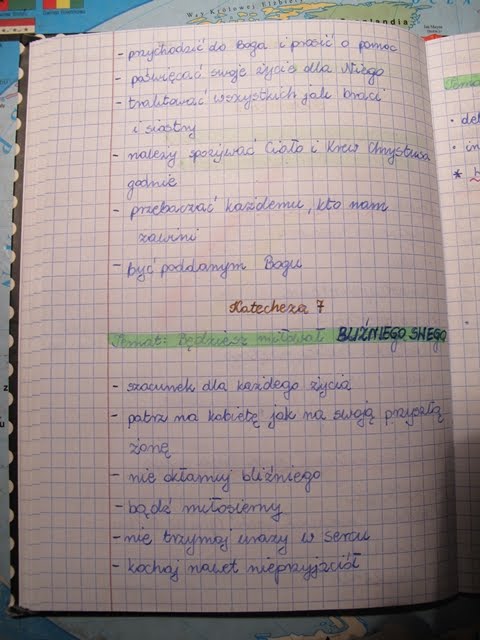 - przychodzić do Boga i prosić o pomoc
- poświęcać swoje życie dla Niego
- traktować wszystkich jak braci
i siostry
- należy spożywać Ciało i Krew Chrystusa
godnie
- przebaczać każdemu, kto nam
zawini
- być poddanym Bogu
Katecheza 7
Temat: Będziesz miłował BLIŹNIEGO SWEGO
- szacunek dla każdego życia
- patrz na kobietę jak na swoją przyszłą
żonę
- nie okłamuj bliźniego
- bądź miłosierny
- nie trzymaj urazy w sercu
- kochaj nawet nieprzyjaciół